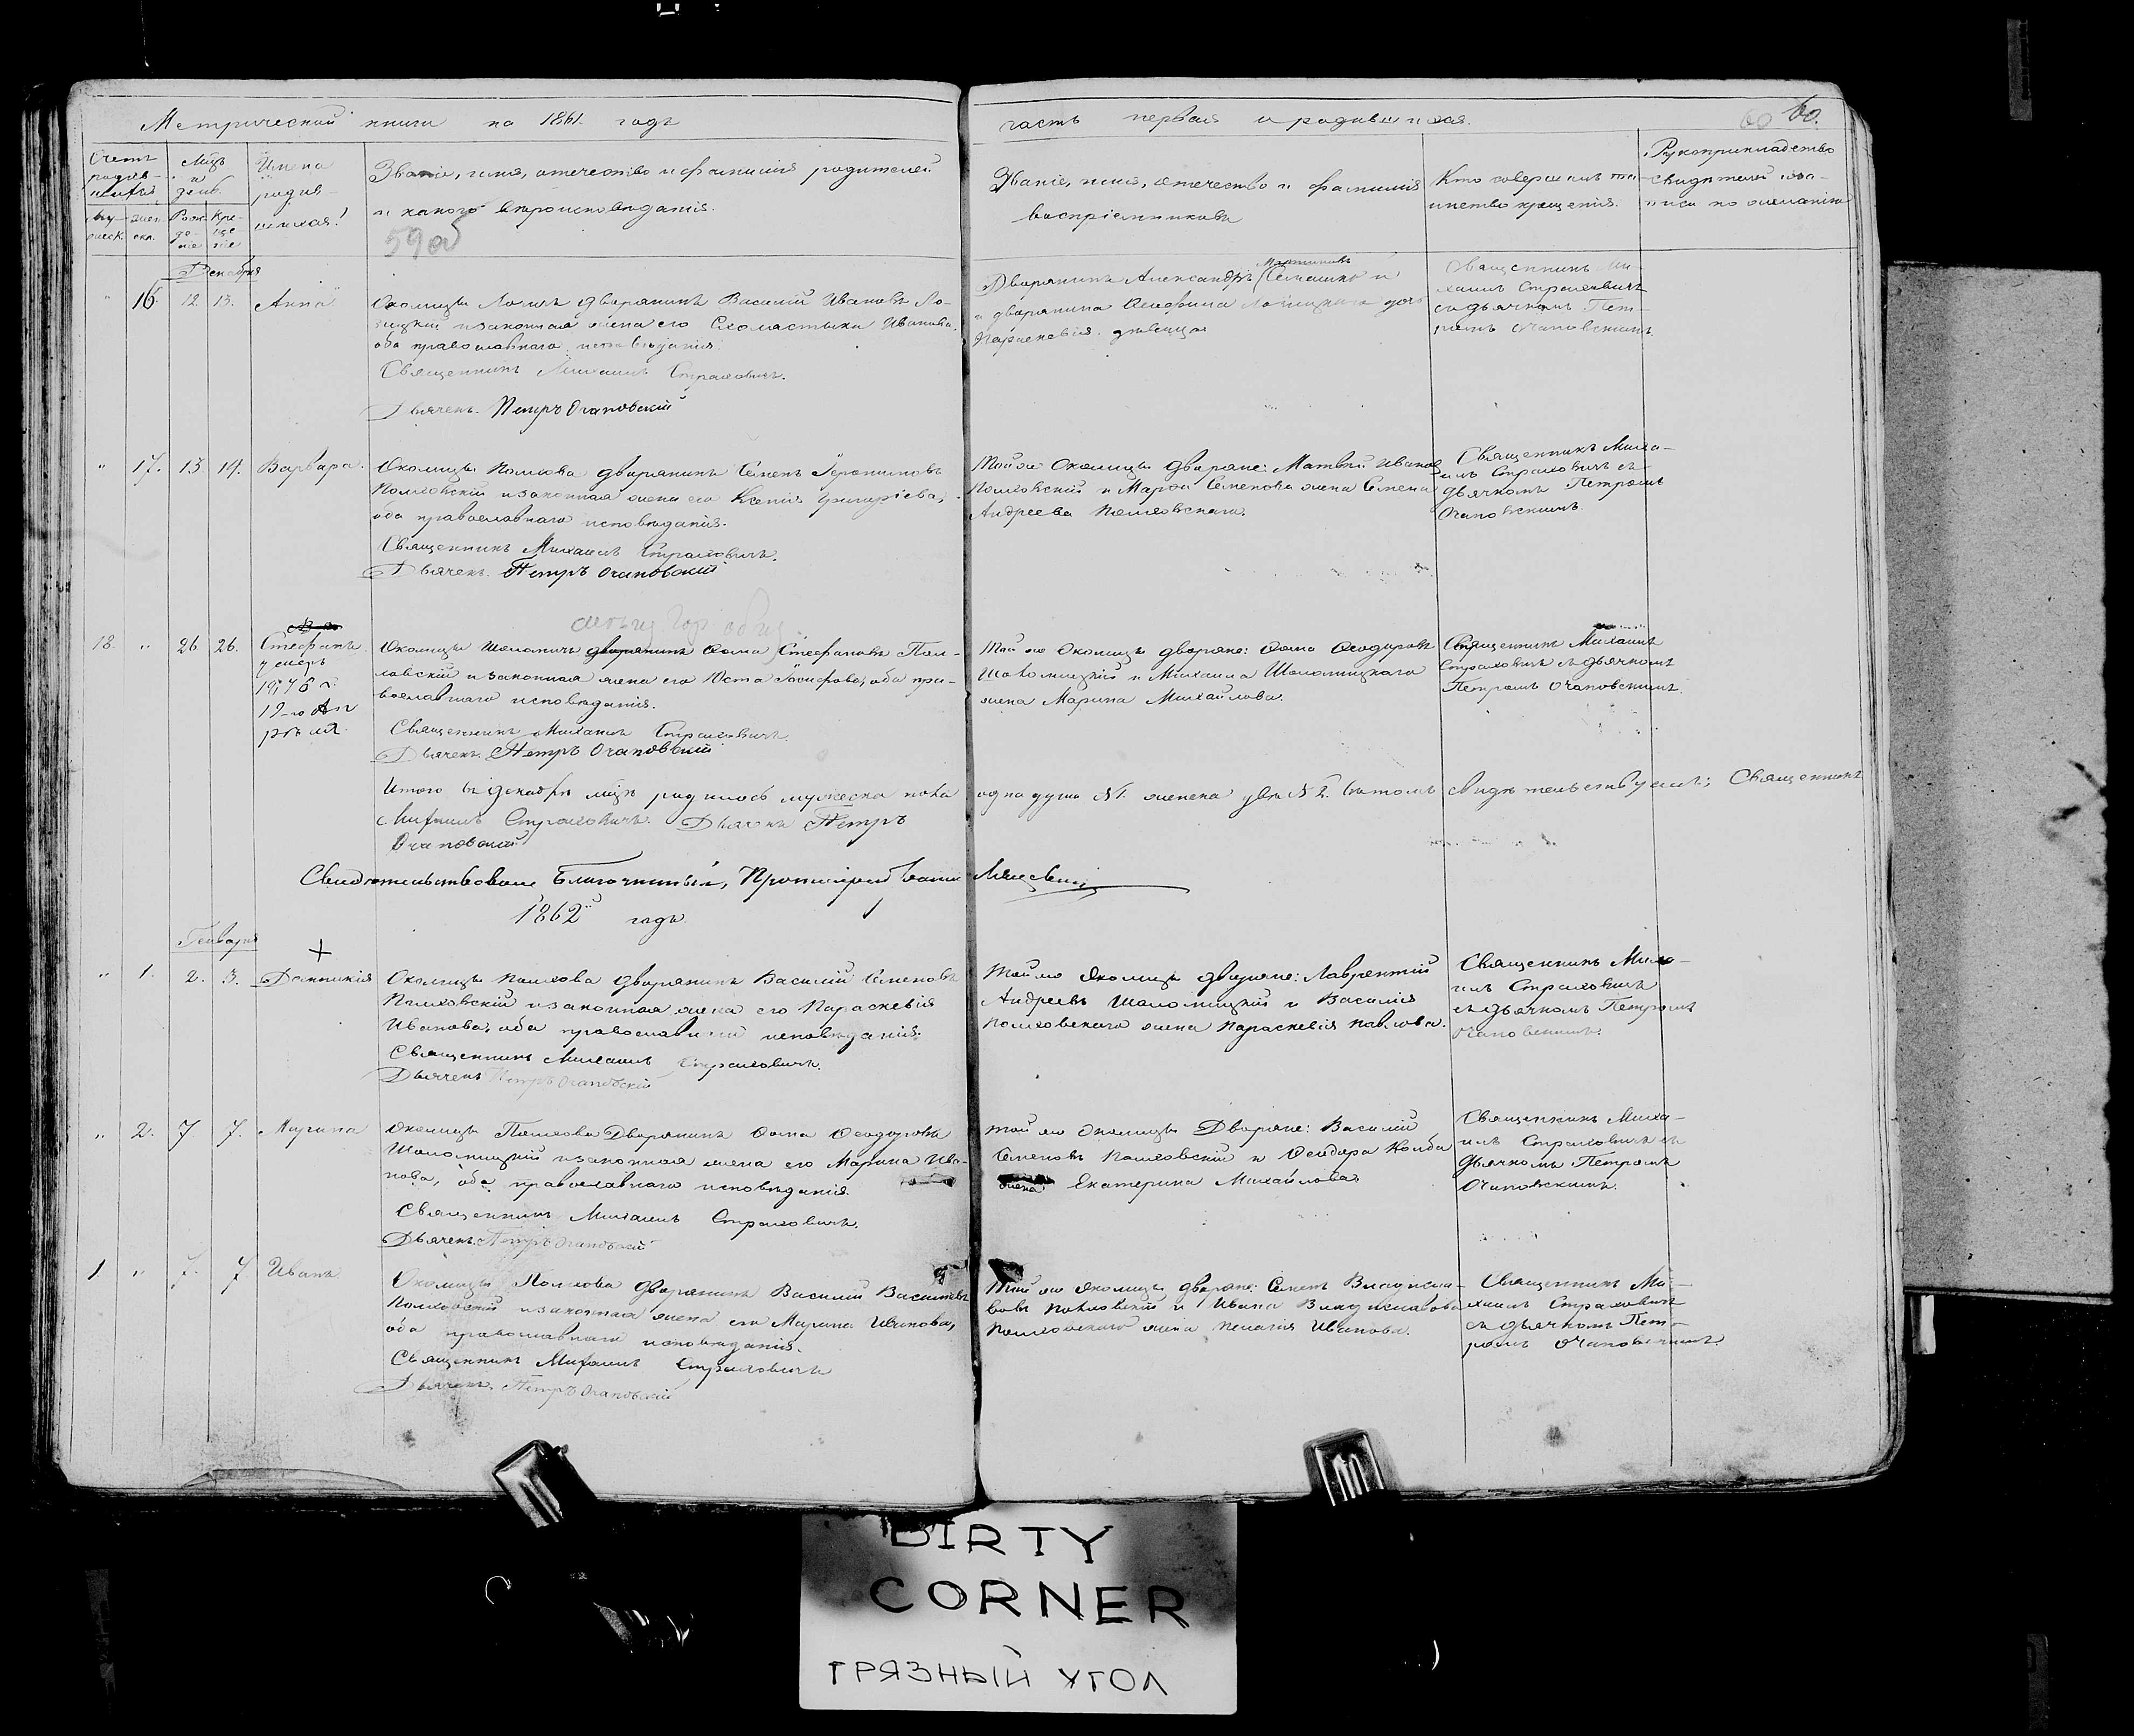 Метрической книги на 1861 годъ
часть первая о родившихся.
60 60.
Счетъ родив-шихся
Мѣцъ и день.
Имена родив-шихся!
Званіе, имя, отечество и фамилія родителей
и какого вѣроисповѣданія.
Званіе, имя, отечество и фамилія
воспріемниковъ
Кто совершалъ та-
инство крещенія.
Рукоприкладство
свидѣтелей записи
по желанію
59 об
Декабря
" 16. 12 13. Анна
Околицы дворянинъ Василій Ивановъ Ло-
зицкій и законная жена его Схоластыка Иванова,
оба православнаго исповѣданія.
Священникъ Михаилъ Страховичъ.
Дьячекъ Петръ Очаповскій
Мартиновъ
Дворянинъ Александръ Семашко и
и дворянина дочь
Параскевія девица
Священникъ Ми-
хаилъ Страховичъ
съ дьячкомъ Пет-
ромъ Очаповскимъ.
" 17. 13. 19. Варвара.
Околицы Полхова дворянинъ Семенъ Іеронимовъ
Полховскій и законная жена его Ксенія Григоріева,
оба православнаго исповѣданія.
Священникъ Михаилъ Страховичъ.
Дьячекъ Петръ Очаповскій
Той же Околицы дворяне: Матвѣй Ивановъ
Полховскій и Марѳа Семенова жена Семена
Андреева Полховскаго.
Священникъ Миха-
илъ Страховичъ съ
дьячкомъ Петромъ
Очаповскимъ.
18. " 26 26. Стефанъ
умеръ
1976 г.
19-го Ап
рѣля
Околицы Шоломичъ дворянинъ Ѳома Стефановъ Пол-
ховскій и законная жена его Юста Іосифова, оба пра-
вославнаго исповѣданія.
Священникъ Михаилъ Страховичъ.
Дьячекъ Петръ Очаповскій
Той же Околицы дворяне: Ѳома Ѳеодоровъ
Шоломицкій и Михаила Шоломицкаго
жена Марина Михайлова.
Священникъ Михаилъ
Страховичъ съ дьячкомъ
Петромъ Очаповскимъ.
Итого въ Декабрѣ мѣцѣ родилось мужеска пола одна душа №1. женска двѣ №2. въ томъ свидѣтельствуемъ; Священникъ
Михаилъ Страховичъ. Дьячекъ Петръ
Очаповскій
Свидѣтельствовалъ Благочинный, Протоіерей Іоаннъ
1862й годъ.
Генваря
+
" 1. 2. 3. Домникія
Околицы Полхова дворянинъ Василій Семеновъ
Полховскій и законная жена его Параскевія
Иванова, оба православнаго исповѣданія.
Священникъ Михаилъ Страховичъ.
Дьячекъ Петръ Очаповскій
Той же Околицы дворяне: Лаврентій
Андреевъ Шоломицкій и Василія
Полховскаго жена Параскевія Павлова.
Священникъ Миха-
илъ Страховичъ
съ дьячкомъ Петромъ
Очаповскимъ.
" 2. 7 7. Марина
Околицы Полхова Дворянинъ Ѳома Ѳеодоровъ
Шоломицкій и законная жена его Марина Ива-
нова, оба православнаго исповѣданія.
Священникъ Михаилъ Страховичъ.
Дьячекъ Петръ Очаповскій
Той же Околицы Дворяне: Василій
Семеновъ Полховскій и Ѳеодора
жена Екатерина Михайлова
Священникъ Миха-
илъ Страховичъ съ
дьячкомъ Петромъ
Очаповскимъ.
1. " 7. 7 Иванъ
Околицы Полхова дворянинъ Василій Васильевъ
Полховскій и законная жена его Марина Иванова,
оба православнаго исповѣданія.
Священникъ Михаилъ Страховичъ
Дьячекъ Петръ Очаповскій
Той же Околицы дворяне: Семенъ Владисла-
вовъ Полховскій и Ивана Владиславова
Полховскаго жена Пелагія Иванова.
Священникъ Ми-
хаилъ Страховичъ
съ дьячкомъ Пет-
ромъ Очаповскимъ.
DIRTY
CORNER
ГРЯЗНЫЙ УГОЛ